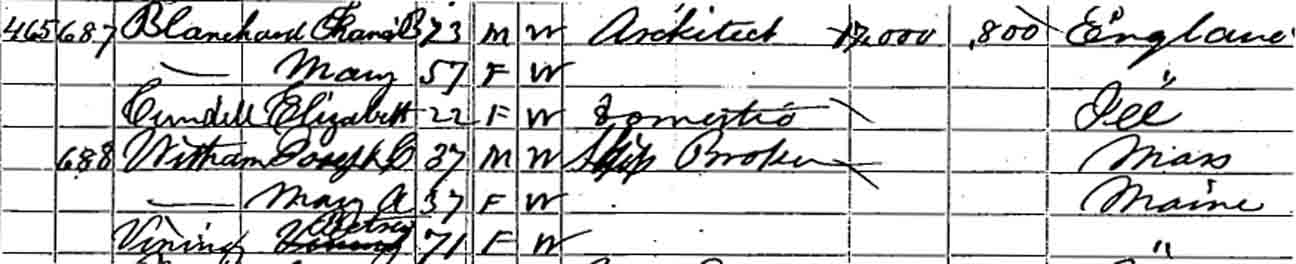 465 687 Blanchard 73 M W Architect 17,000 ,800 England
— Mary 57 F W "
Elizabeth 22 F W Domestic Ill
688 Witham Joseph C 37 M W Ship Broker Mass
— Mary A 37 F W Maine
Vining Betsey 71 F W "